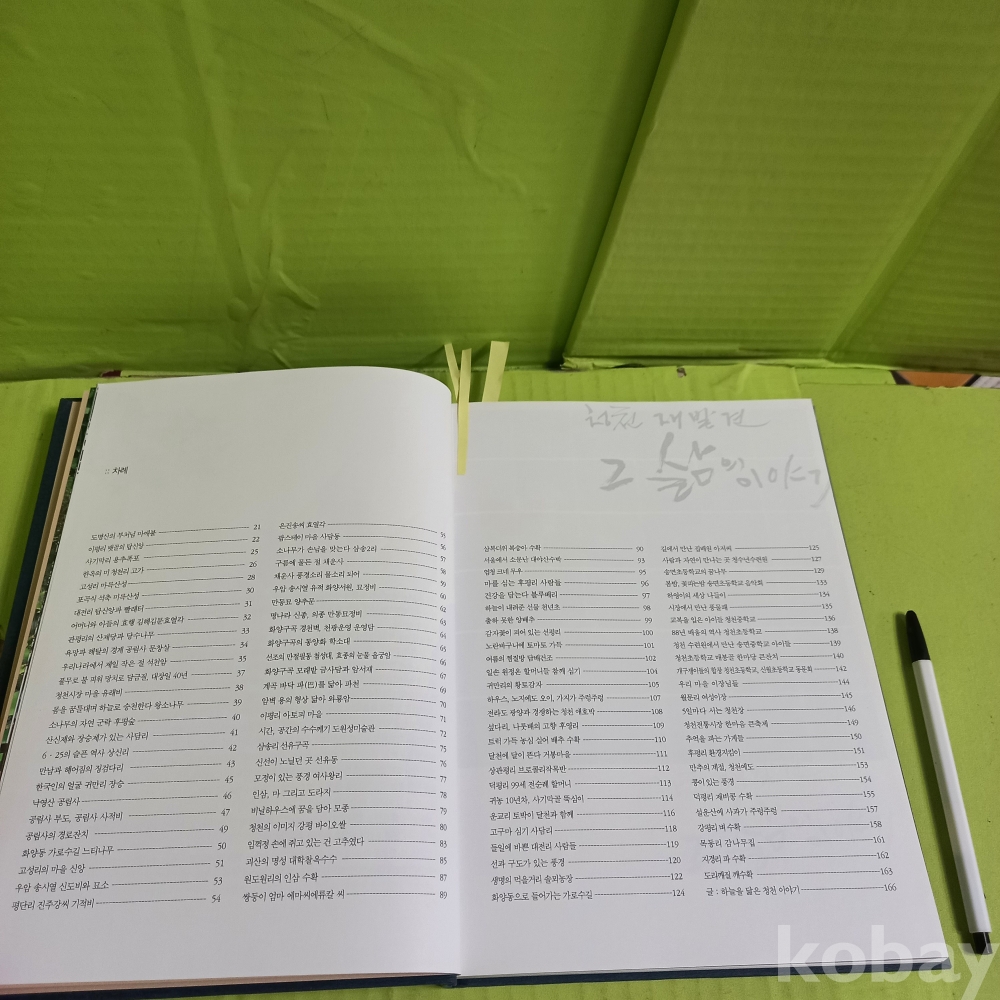 :: 차례
도명산의 부처님 마애불 21
이평리 뱃골의 탑신앙 22
사기막리 용추폭포 25
한옥의 미 청천리 고가 26
고성리 마득산성 28
포곡식 석축 미륵산성 30
대전리 탑신앙과 빨래터 31
어머니와 아들의 효행 김해김문효열각 32
관평리의 산제당과 당수나무 33
욕망과 해탈의 경계 공림사 문장살 34
우리나라에서 제일 작은 절 석천암 35
풀무로 불 피워 망치로 담금질, 대장일 40년 37
청천시장 마을 유래비 38
몸을 꿈틀대며 하늘로 승천한다 왕소나무 39
소나무의 자연 군락 후평숲 40
산신제와 장승제가 있는 사담리 41
6 · 25의 슬픈 역사 상신리 42
만남과 헤어짐의 징검다리 43
한국인의 얼굴 귀만리 장승 45
낙영산 공림사 46
공림사 부도, 공림사 사적비 47
공림사의 경로잔치 49
화양동 가로수길 느티나무 50
고성리의 마을 신앙 51
우암 송시열 신도비와 묘소 53
평단리 진주강씨 기적비 54
은진송씨 효열각 55
팜스테이 마을 사담동 56
소나무가 손님을 맞는다 삼송2리 57
구름에 물든 절 채운사 58
채운사 풍경소리 물소리 되어 59
우암 송시열 유적 화양서원, 묘정비 60
만동묘 양추문 62
명나라 신종, 의종 만동묘정비 62
화양구곡 경천벽, 천광운영 운영담 63
화양구곡의 중양화 학소대 64
선조의 만절필동 첨성대, 효종의 눈물 읍궁암 66
화양구곡 모래밭 금사담과 암서재 67
계곡 바닥 파(巴)를 닮아 파천 69
암벽 용의 형상 닮아 와룡암 70
이평리 아토피 마을 71
시간, 공간의 수수께끼 도원성미술관 72
삼송리 선유구곡 75
신선이 노닐던 곳 선유동 76
모정이 있는 풍경 여사왕리 77
인삼, 마 그리고 도라지 78
비닐하우스에 꿈을 담아 모종 79
청천의 이미지 강평 바이오쌀 80
임꺽정 손에 쥐고 있는 건 고추였다 83
괴산의 명성 대학찰옥수수 85
원도원리의 인삼 수확 87
쌍둥이 엄마 에마씨에류칼 씨 89
청천 재발견
그 삶의 이야기
삼복더위 복숭아 수확 90
서울에서 소문난 대야산수박 92
엄청 크네 무우 95
마를 심는 후평리 사람들 96
건강을 담는다 블루베리 97
하늘이 내려준 선물 천년초 98
출하 못한 양배추 99
감자꽃이 피어 있는 선평리 100
노란바구니에 토마토 가득 101
여름의 현절방 담배건조 102
일손 원정온 할머니들 참깨 심기 104
귀만리의 황토감자 105
하우스, 노지에도 오이, 가지가 주렁주렁 107
전라도 광양과 경쟁하는 청천 애호박 108
섶다리, 나룻배의 고향 후영리 109
트럭 가득 농심 실어 배추 수확 110
달천에 달이 뜬다 거봉마을 111
상관평리 브로콜리작목반 112
덕평리 99세 전순례 할머니 113
귀농 10년차, 사기막골 뚝심이 114
운교리 토박이 달천과 함께 116
고구마 심기 사담리 118
들일에 바쁜 대전리 사람들 119
선과 구도가 있는 풍경 120
생명의 먹을거리 솔뫼농장 122
화양동으로 들어가는 가로수길 124
길에서 만난 김해원 아저씨 125
사람과 자연이 만나는 곳 청소년수련원 127
송면초등학교의 꿈나무 129
봄밤, 꽃피는밤 송면초등학교 음악회 133
하영이의 세상 나들이 134
시장에서 만난 풍물패 135
교복을 입은 아이들 청천중학교 136
88년 배움의 역사 청천초등학교 138
청천 수련원에서 만난 송면중학교 아이들 139
청천초등학교 매봉골 한마당 큰잔치 140
개구쟁이들의 합창 청천초등학교, 신월초등학교 동문회 142
우리 마을 이장님들 144
월문리 여성이장 145
5일마다 서는 청천장 146
청천전통시장 한마음 큰축제 149
추억을 파는 가게들 150
후평리 환경지킴이 151
만추의 계절, 청천쎄도 153
콩이 있는 풍경 154
덕평리 제비콩 수확 155
실운산에 사과가 주렁주렁 157
강평리 벼 수확 158
목동리 감나무집 161
지경리 파 수확 162
도리깨질 깨수확 163
글 : 하늘을 닮은 청천 이야기 166
kobay